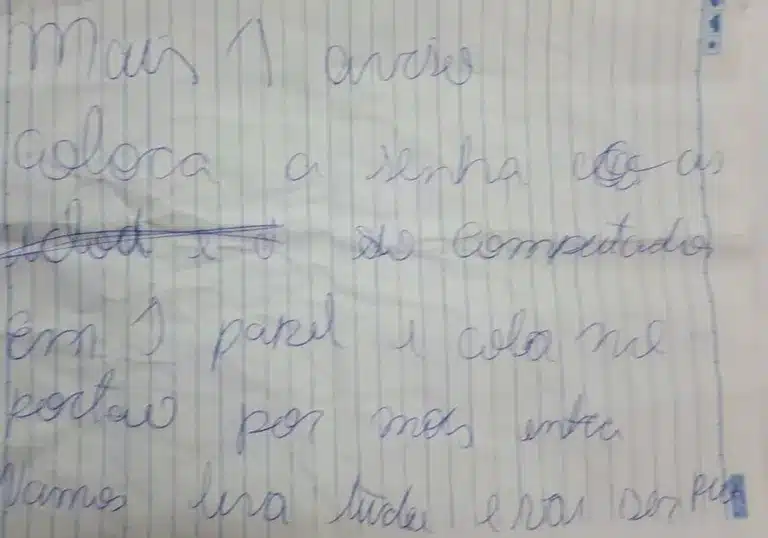 Mais 1 aviso
coloca a senha as
do computador
em 1 papel i cola no
portao por nos entra
Vamos leva tudo e vai ser pior